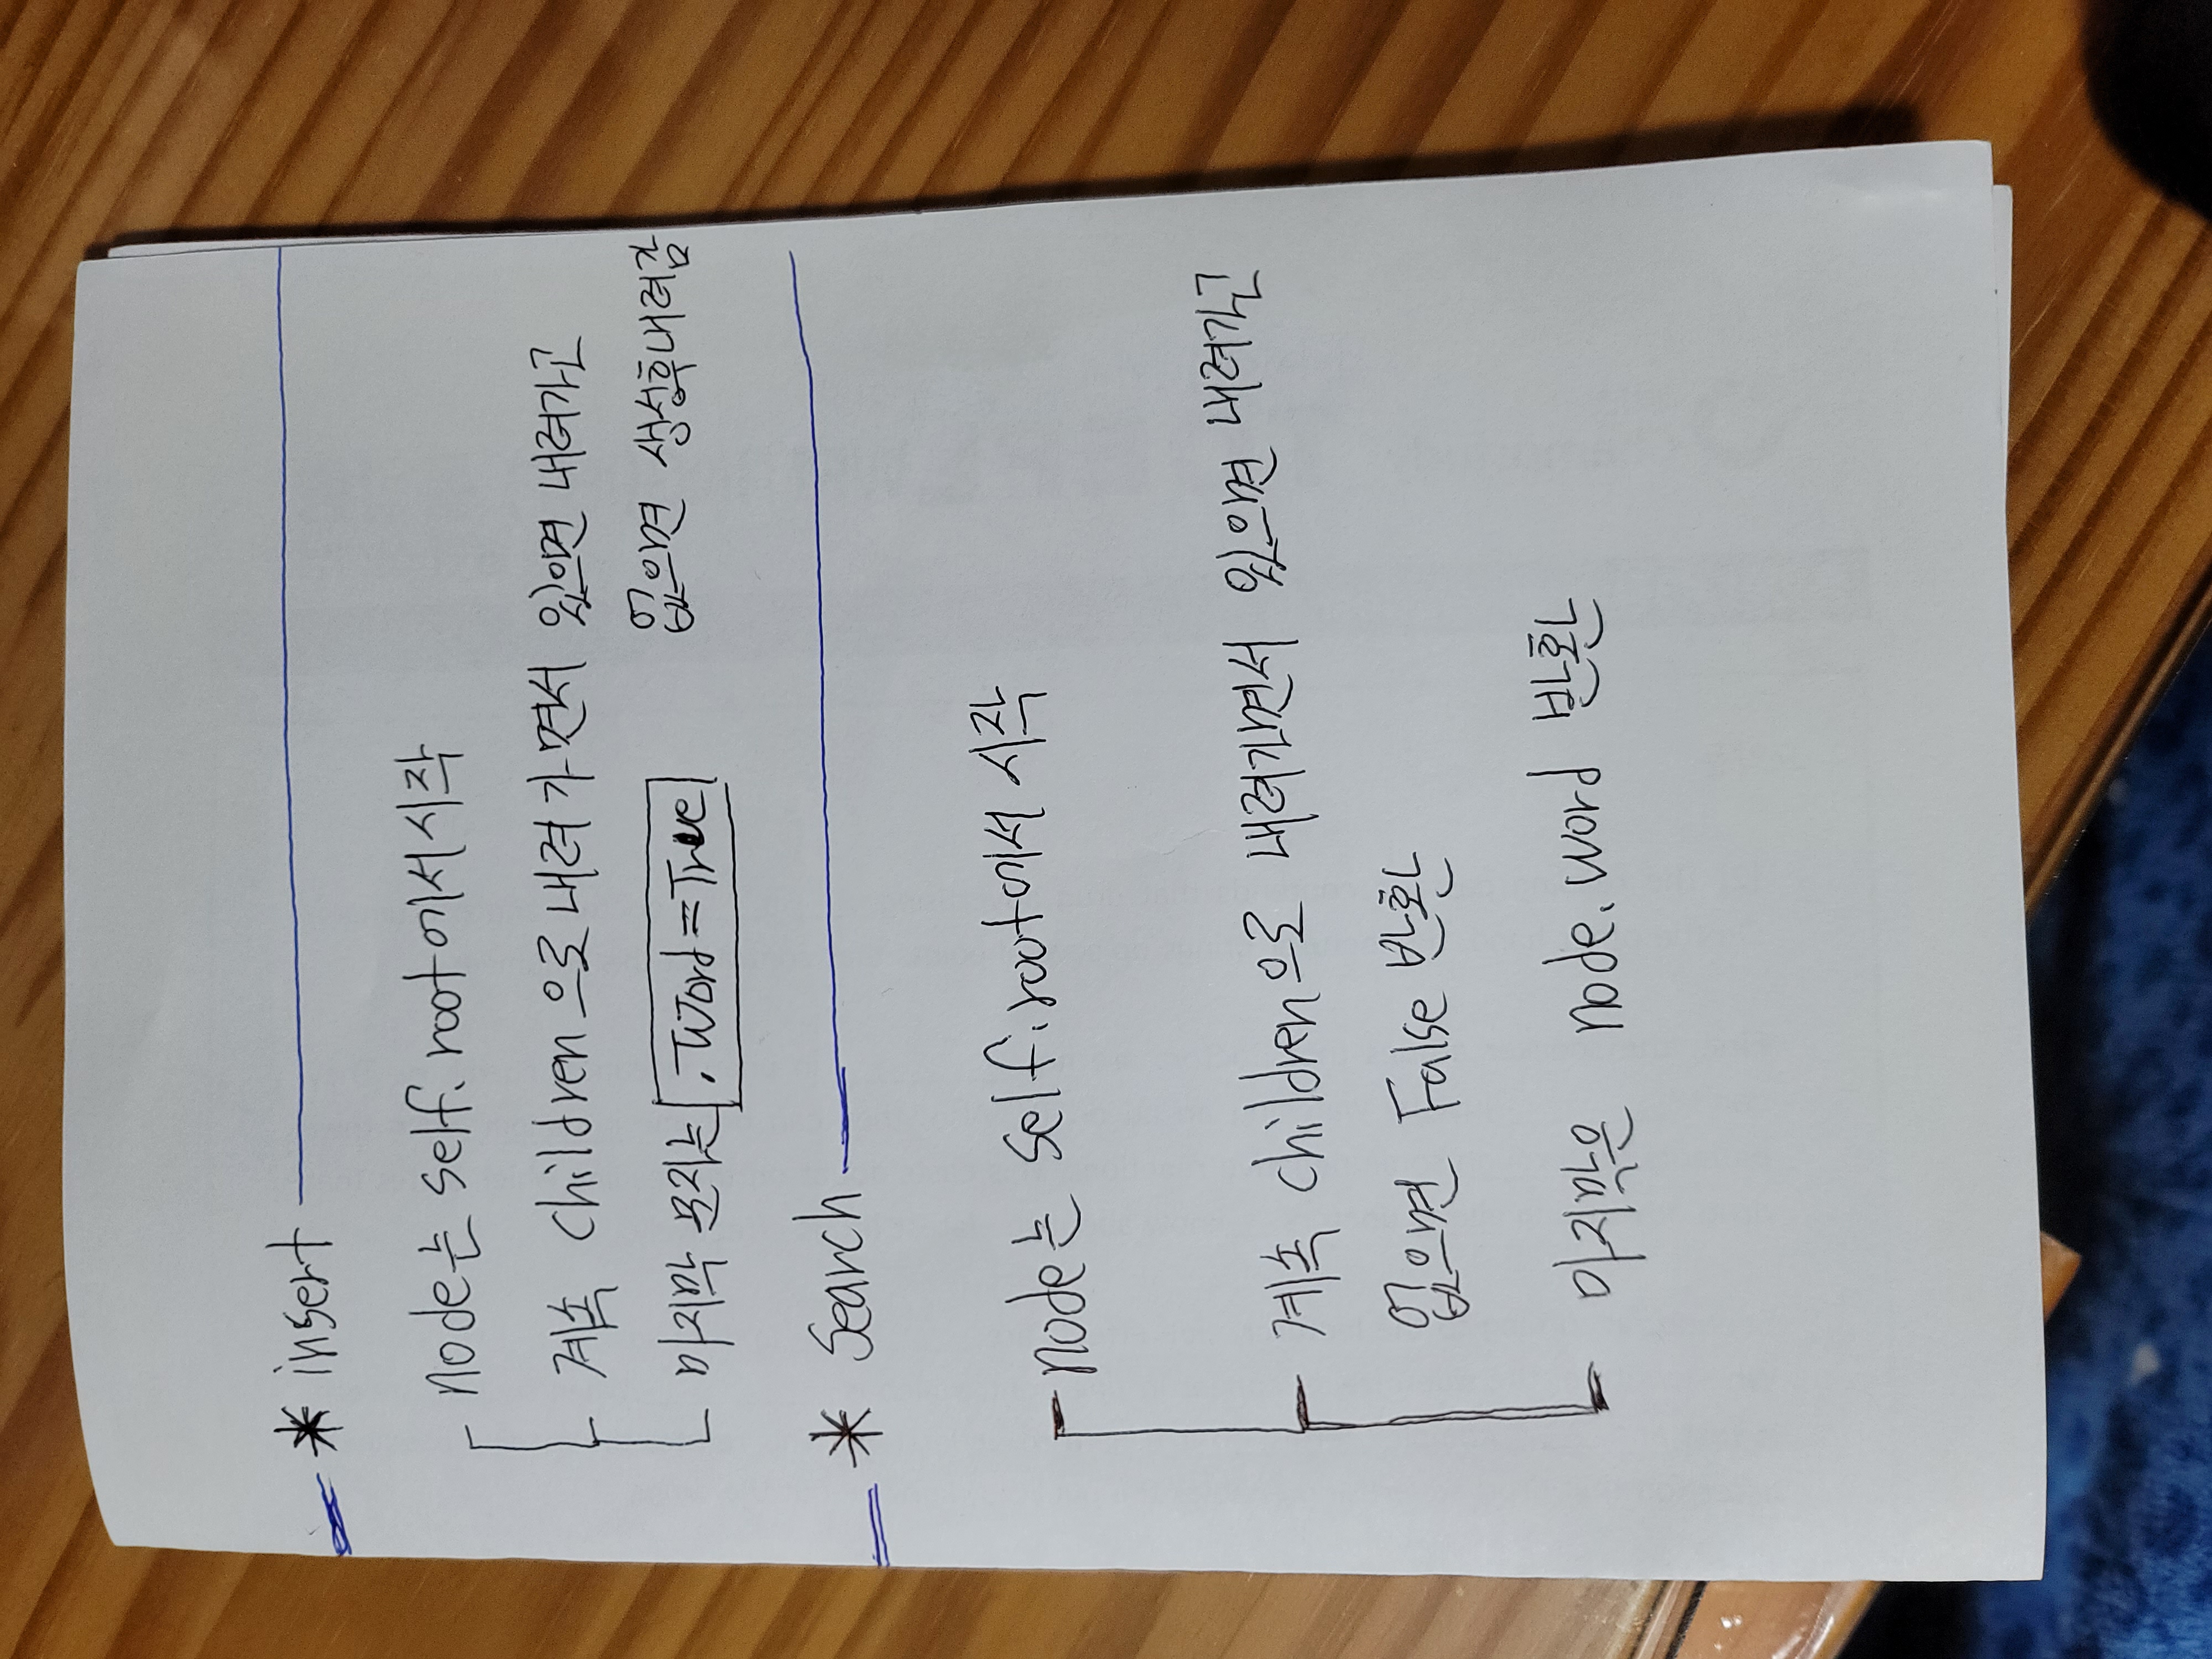 * insert
node는 self.root에서 시작
계속 children으로 내려가면서 있으면 내려가고
없으면 생성후내려감
마지막 문자는 .word=True
* Search
node는 self.root에서 시작
계속 children으로 내려가면서 있으면 내려가고
없으면 False 반환
마지막은 node.word 반환